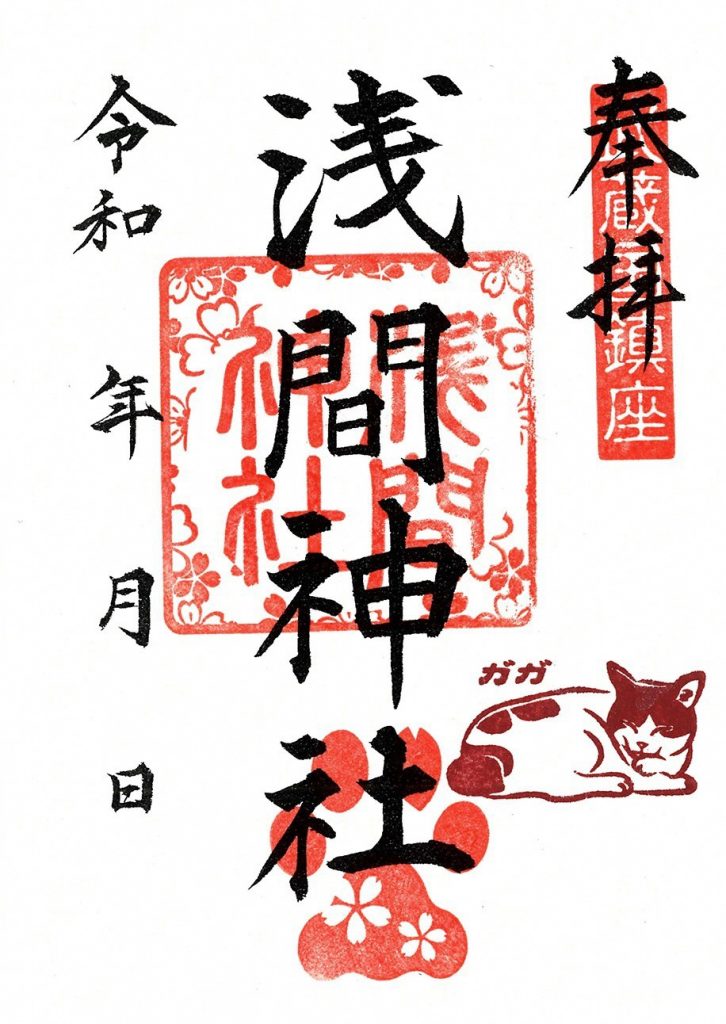 奉拝
武蔵国鎮座
浅間神社
浅間神社
ガガ
令和 年 月 日